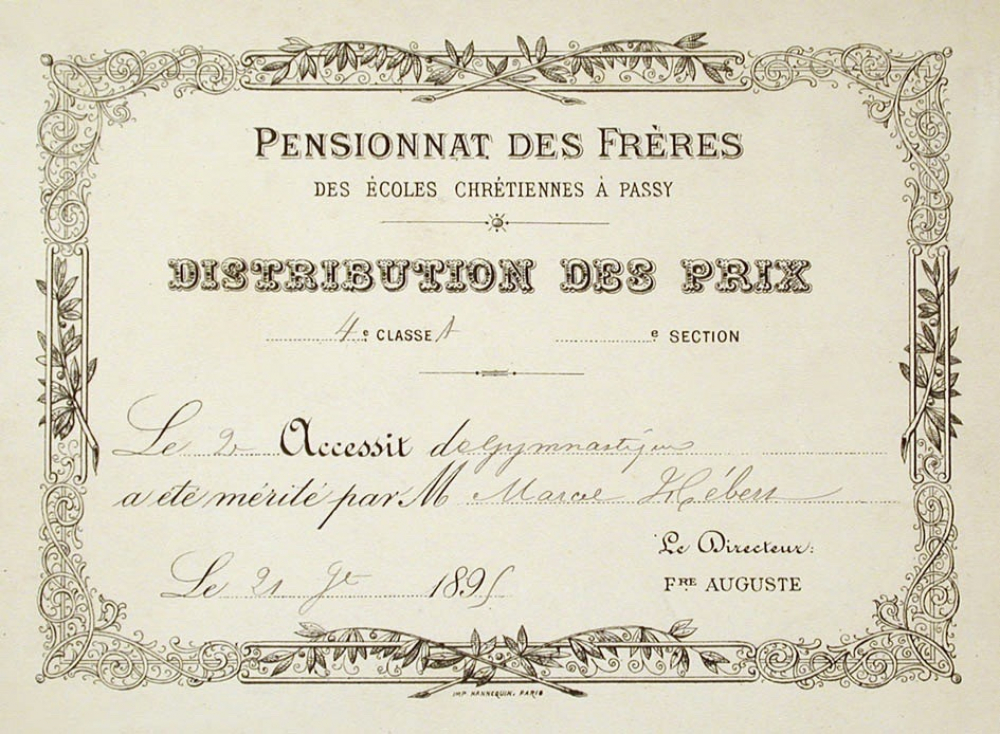 PENSIONNAT DES FRÈRES
DES ÉCOLES CHRÉTIENNES À PASSY
DISTRIBUTION DES PRIX
4e CLASSE A e SECTION
Le 2e Accessit de gymnastique
a été mérité par M Marcel Hébert
Le Directeur:
Le 21 1895
FRE AUGUSTE
IMP. HENNEQUIN, PARIS